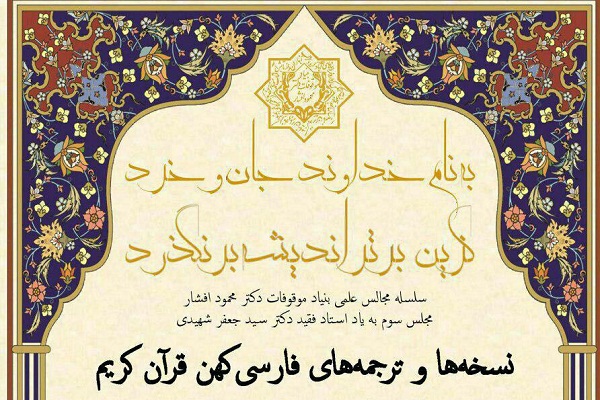 به نام خداوند جان و خرد
کزین برتر اندیشه بر نگذرد
سلسله مجالس علمی بنیاد موقوفات دکتر محمود افشار
مجلس سوم به یاد استاد فقید دکتر سید جعفر شهیدی
نسخه‌ها و ترجمه‌های فارسی کهن قرآن کریم